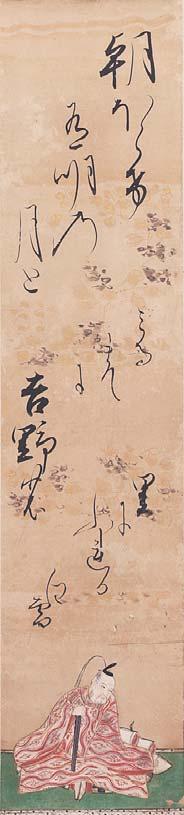 朝ほらけ
有明の
月と
みる
まて
に
吉野の
里に
ふれる
白雪